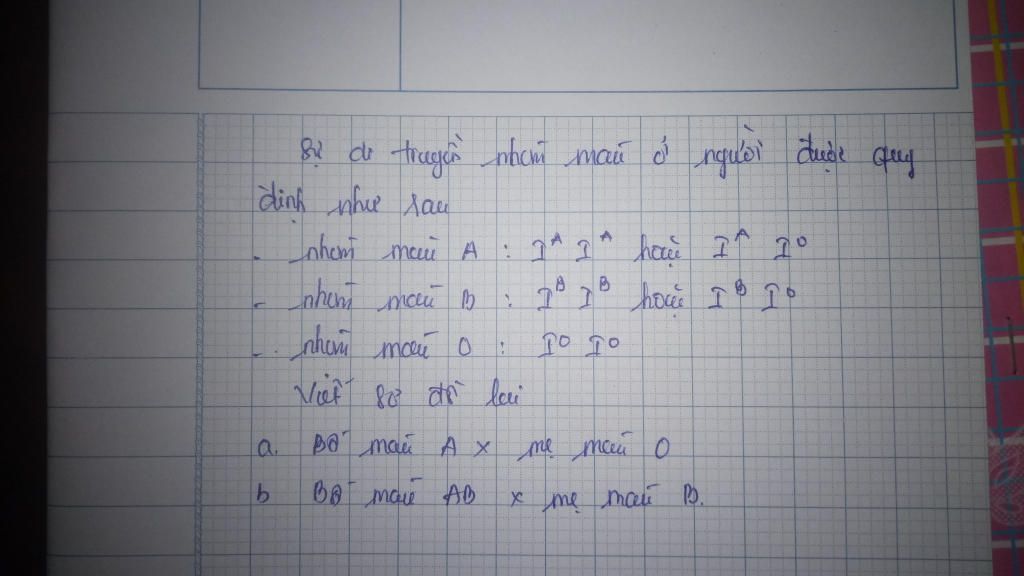 Sự di truyền nhóm máu ở người được quy
định như sau
- nhóm máu A : I^A I^A hoặc I^A I^O
- nhóm máu B : I^B I^B hoặc I^B I^O
- nhóm máu O : I^O I^O
Viết sơ đồ lai
a. Bố máu A x mẹ máu O
b Bố máu AB x mẹ máu B.